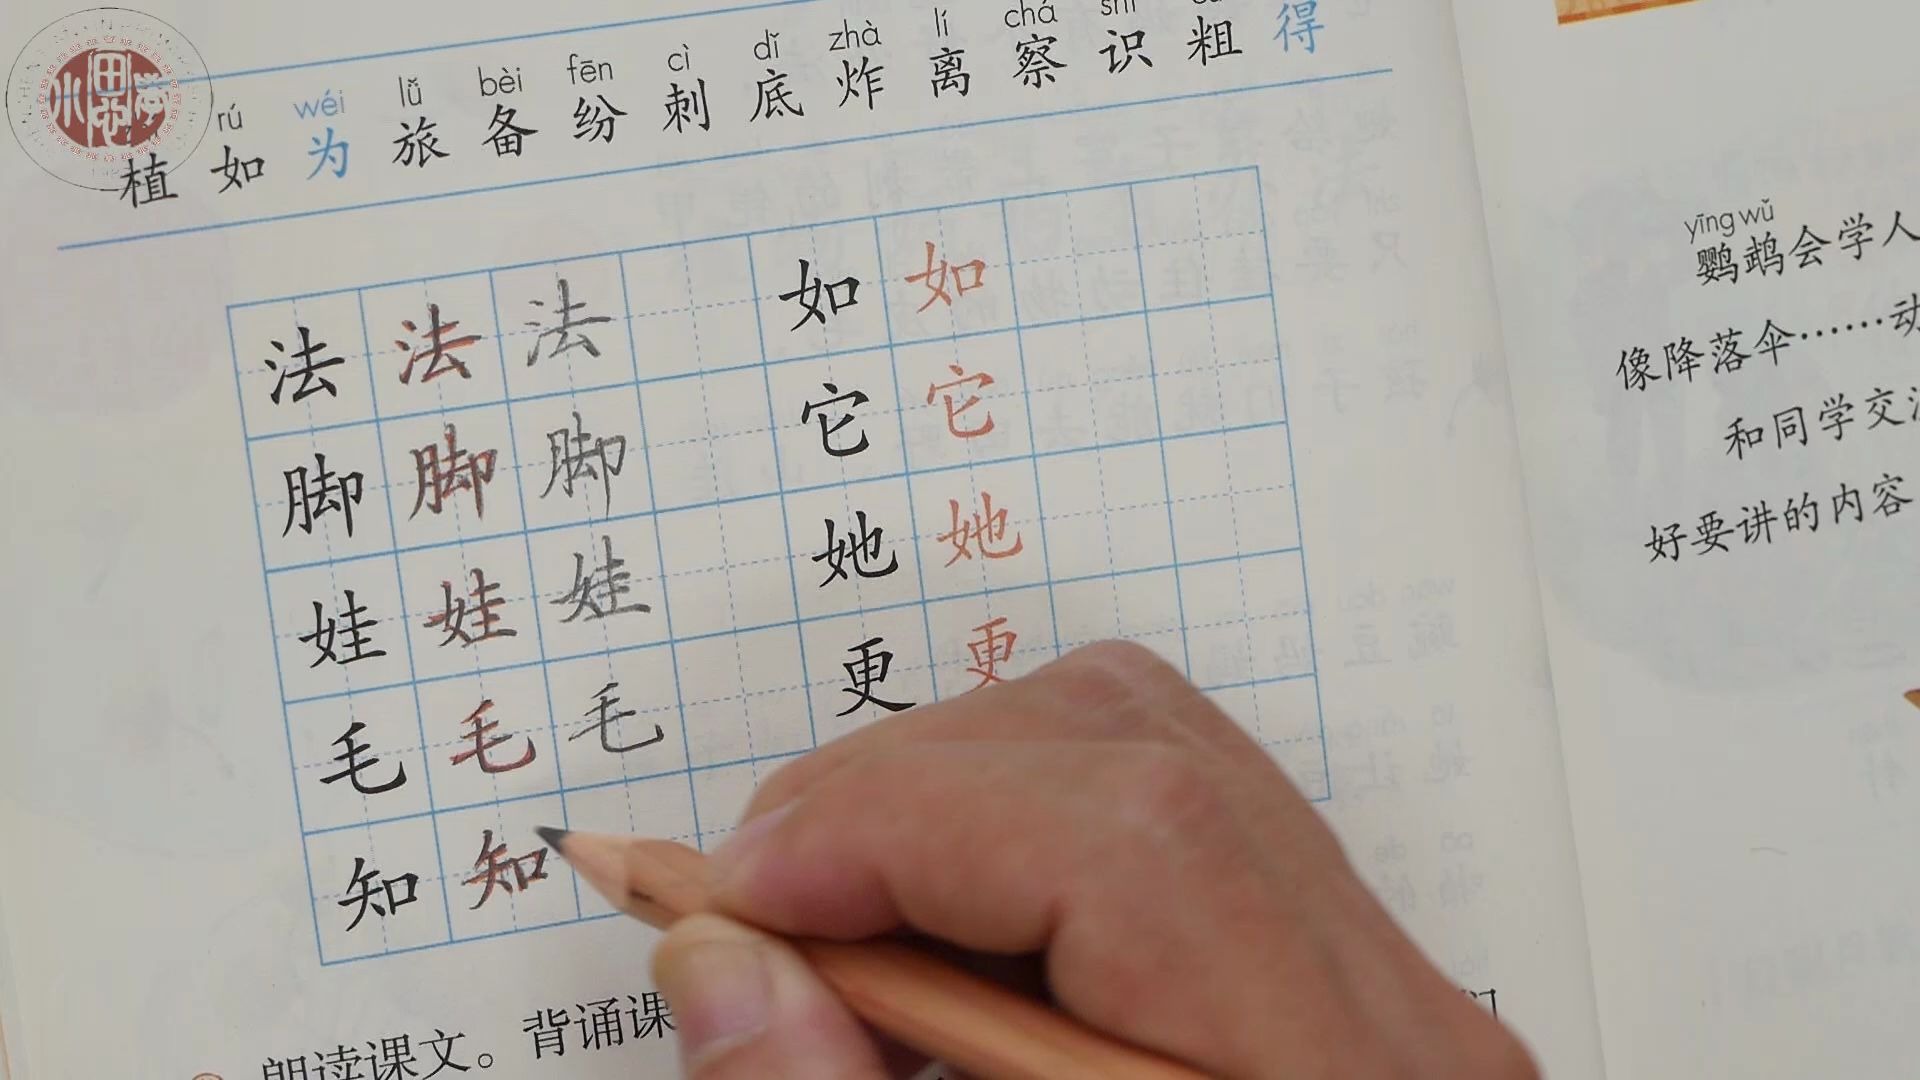 rú wéi lǚ bèi fēn cì dǐ zhà lí chá shí
植 如 为 旅 备 纷 刺 底 炸 离 察 识 粗 得
法 法 法 如 如
脚 脚 脚 它 它
娃 娃 娃 她 她
毛 毛 毛 更 更
知 知
朗读课文。背诵课
yīng wǔ
鹦鹉会学人
像降落伞……动
和同学交流
好要讲的内容